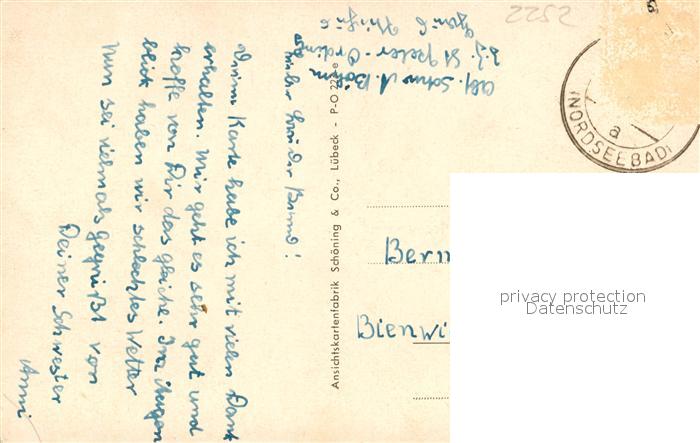 2522
Abs. Schw. A. Böhm
z.Z. St. Peter-Ording
Lieber Bruder Bernd!
Deine Karte habe ich mit vielen Dank
erhalten. Mir geht es sehr gut und
hoffe von Dir das gleiche. Im Augen
blick haben wir schlechtes Wetter
Nun sei vielmals gegrüßt von
Deiner Schwester
Anni
Ansichtskartenfabrik Schöning & Co., Lübeck - P-O
a
(NORDSEEBAD)
Bern
Bienwi
privacy protection
Datenschutz